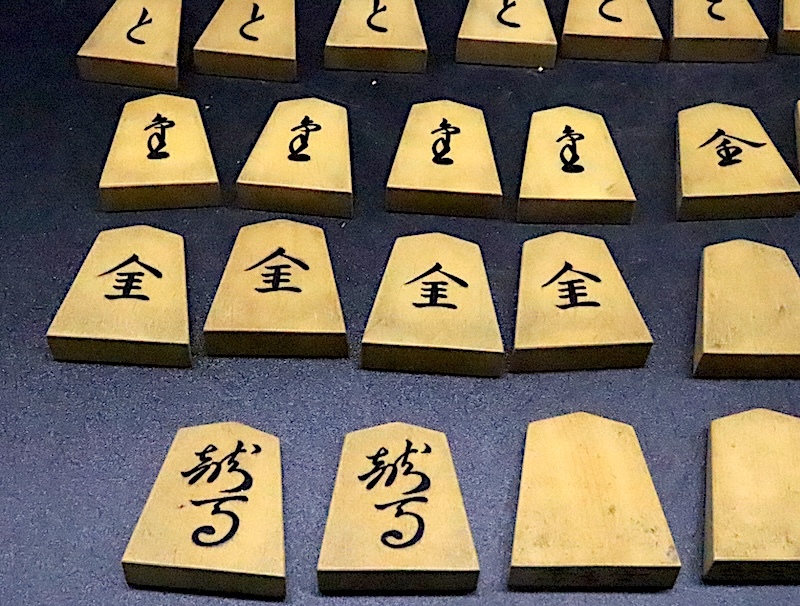 と と と と と と
金 金 金 金 金
金 金 金 金
龍馬 龍馬